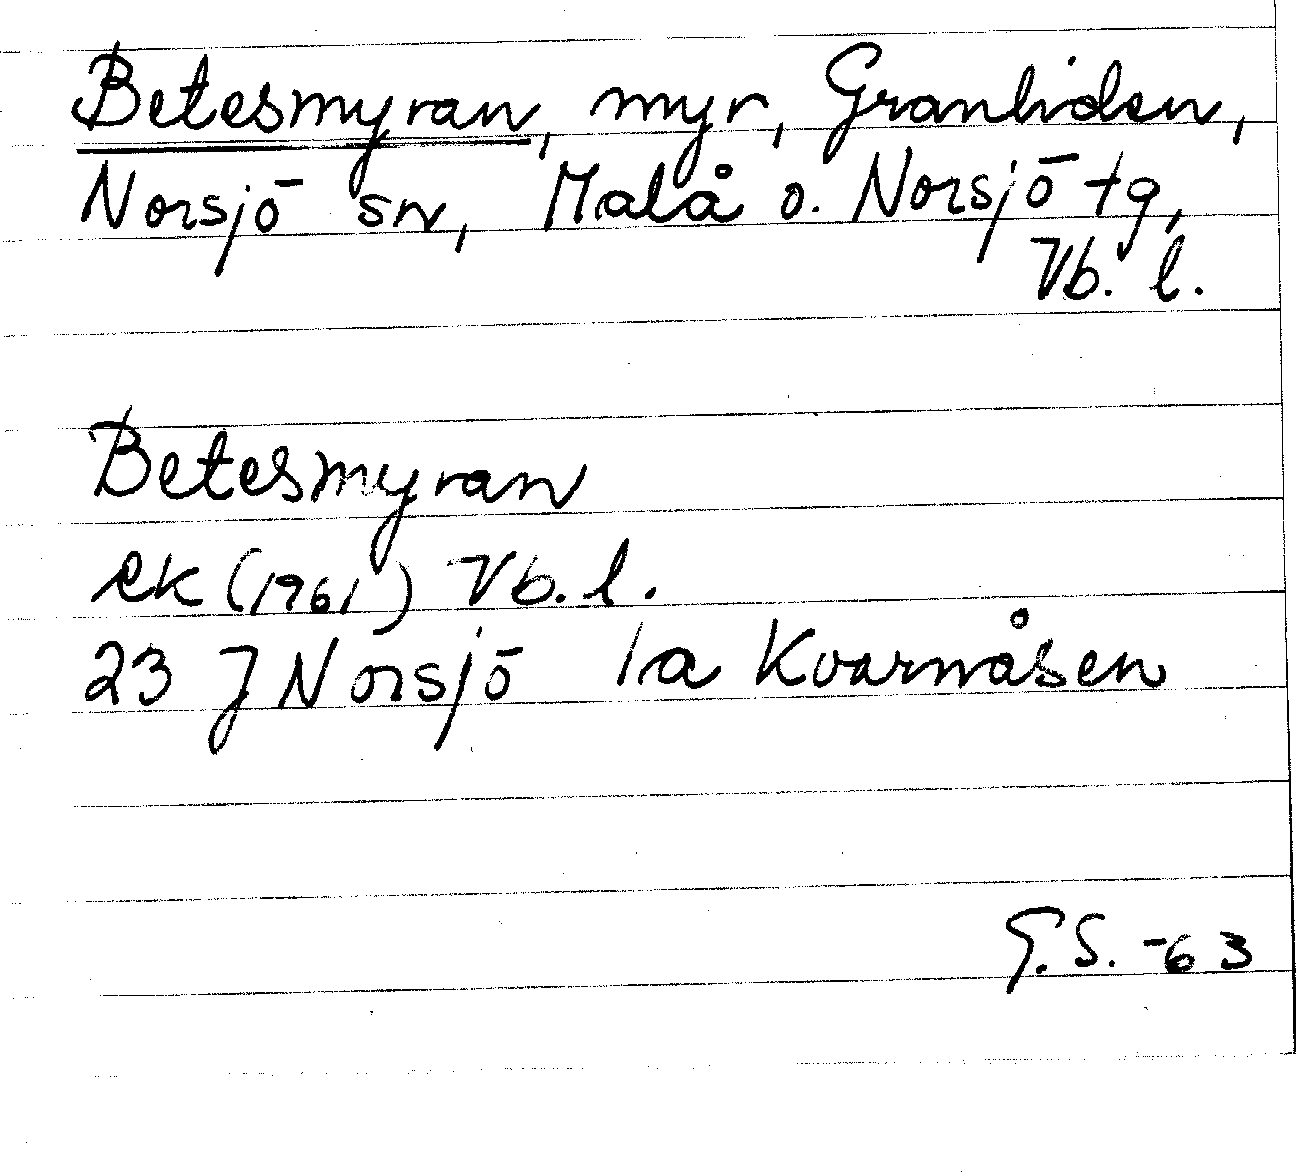 Betesmyran, myr, Granliden,
Norsjö sn, Malå o. Norsjö tg,
Vb. l.
Betesmyran
ek (1961) Vb. l.
23 J Norsjö 1a Kvarnåsen
G.S. -63